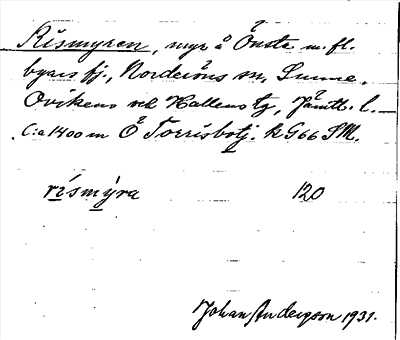 Rismyren, myr å Önsta m. fl.
byars fj., Norderöns sn, Sunne,
Ovikens och Hallens tg, Jämtl. l.
C:a 1400 m Ö Torrisbotj. k G66 SM.
rismýra 120
Johan Anderson 1931.